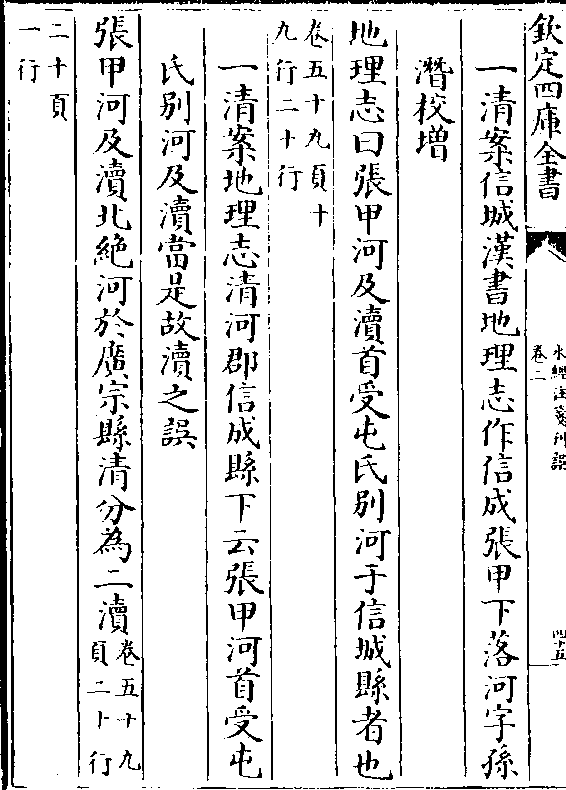 欽定四庫全書
水經注箋刊誤
卷二
四十五
一清案信城漢書地理志作信成張甲下落河字孫
潛校增
地理志曰張甲河及瀆首受屯氏別河于信城縣者也
卷五十九頁十
九行二十行
一清案地理志清河郡信成縣下云張甲河首受屯
氏別河及瀆當是故瀆之誤
張甲河及瀆北絶河於廣宗縣清分為二瀆
卷五十九
頁二十行
二十頁
一行